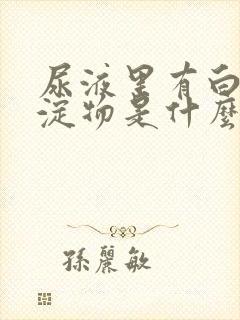 尿液里有白
淀物是什麼
孫麗敏